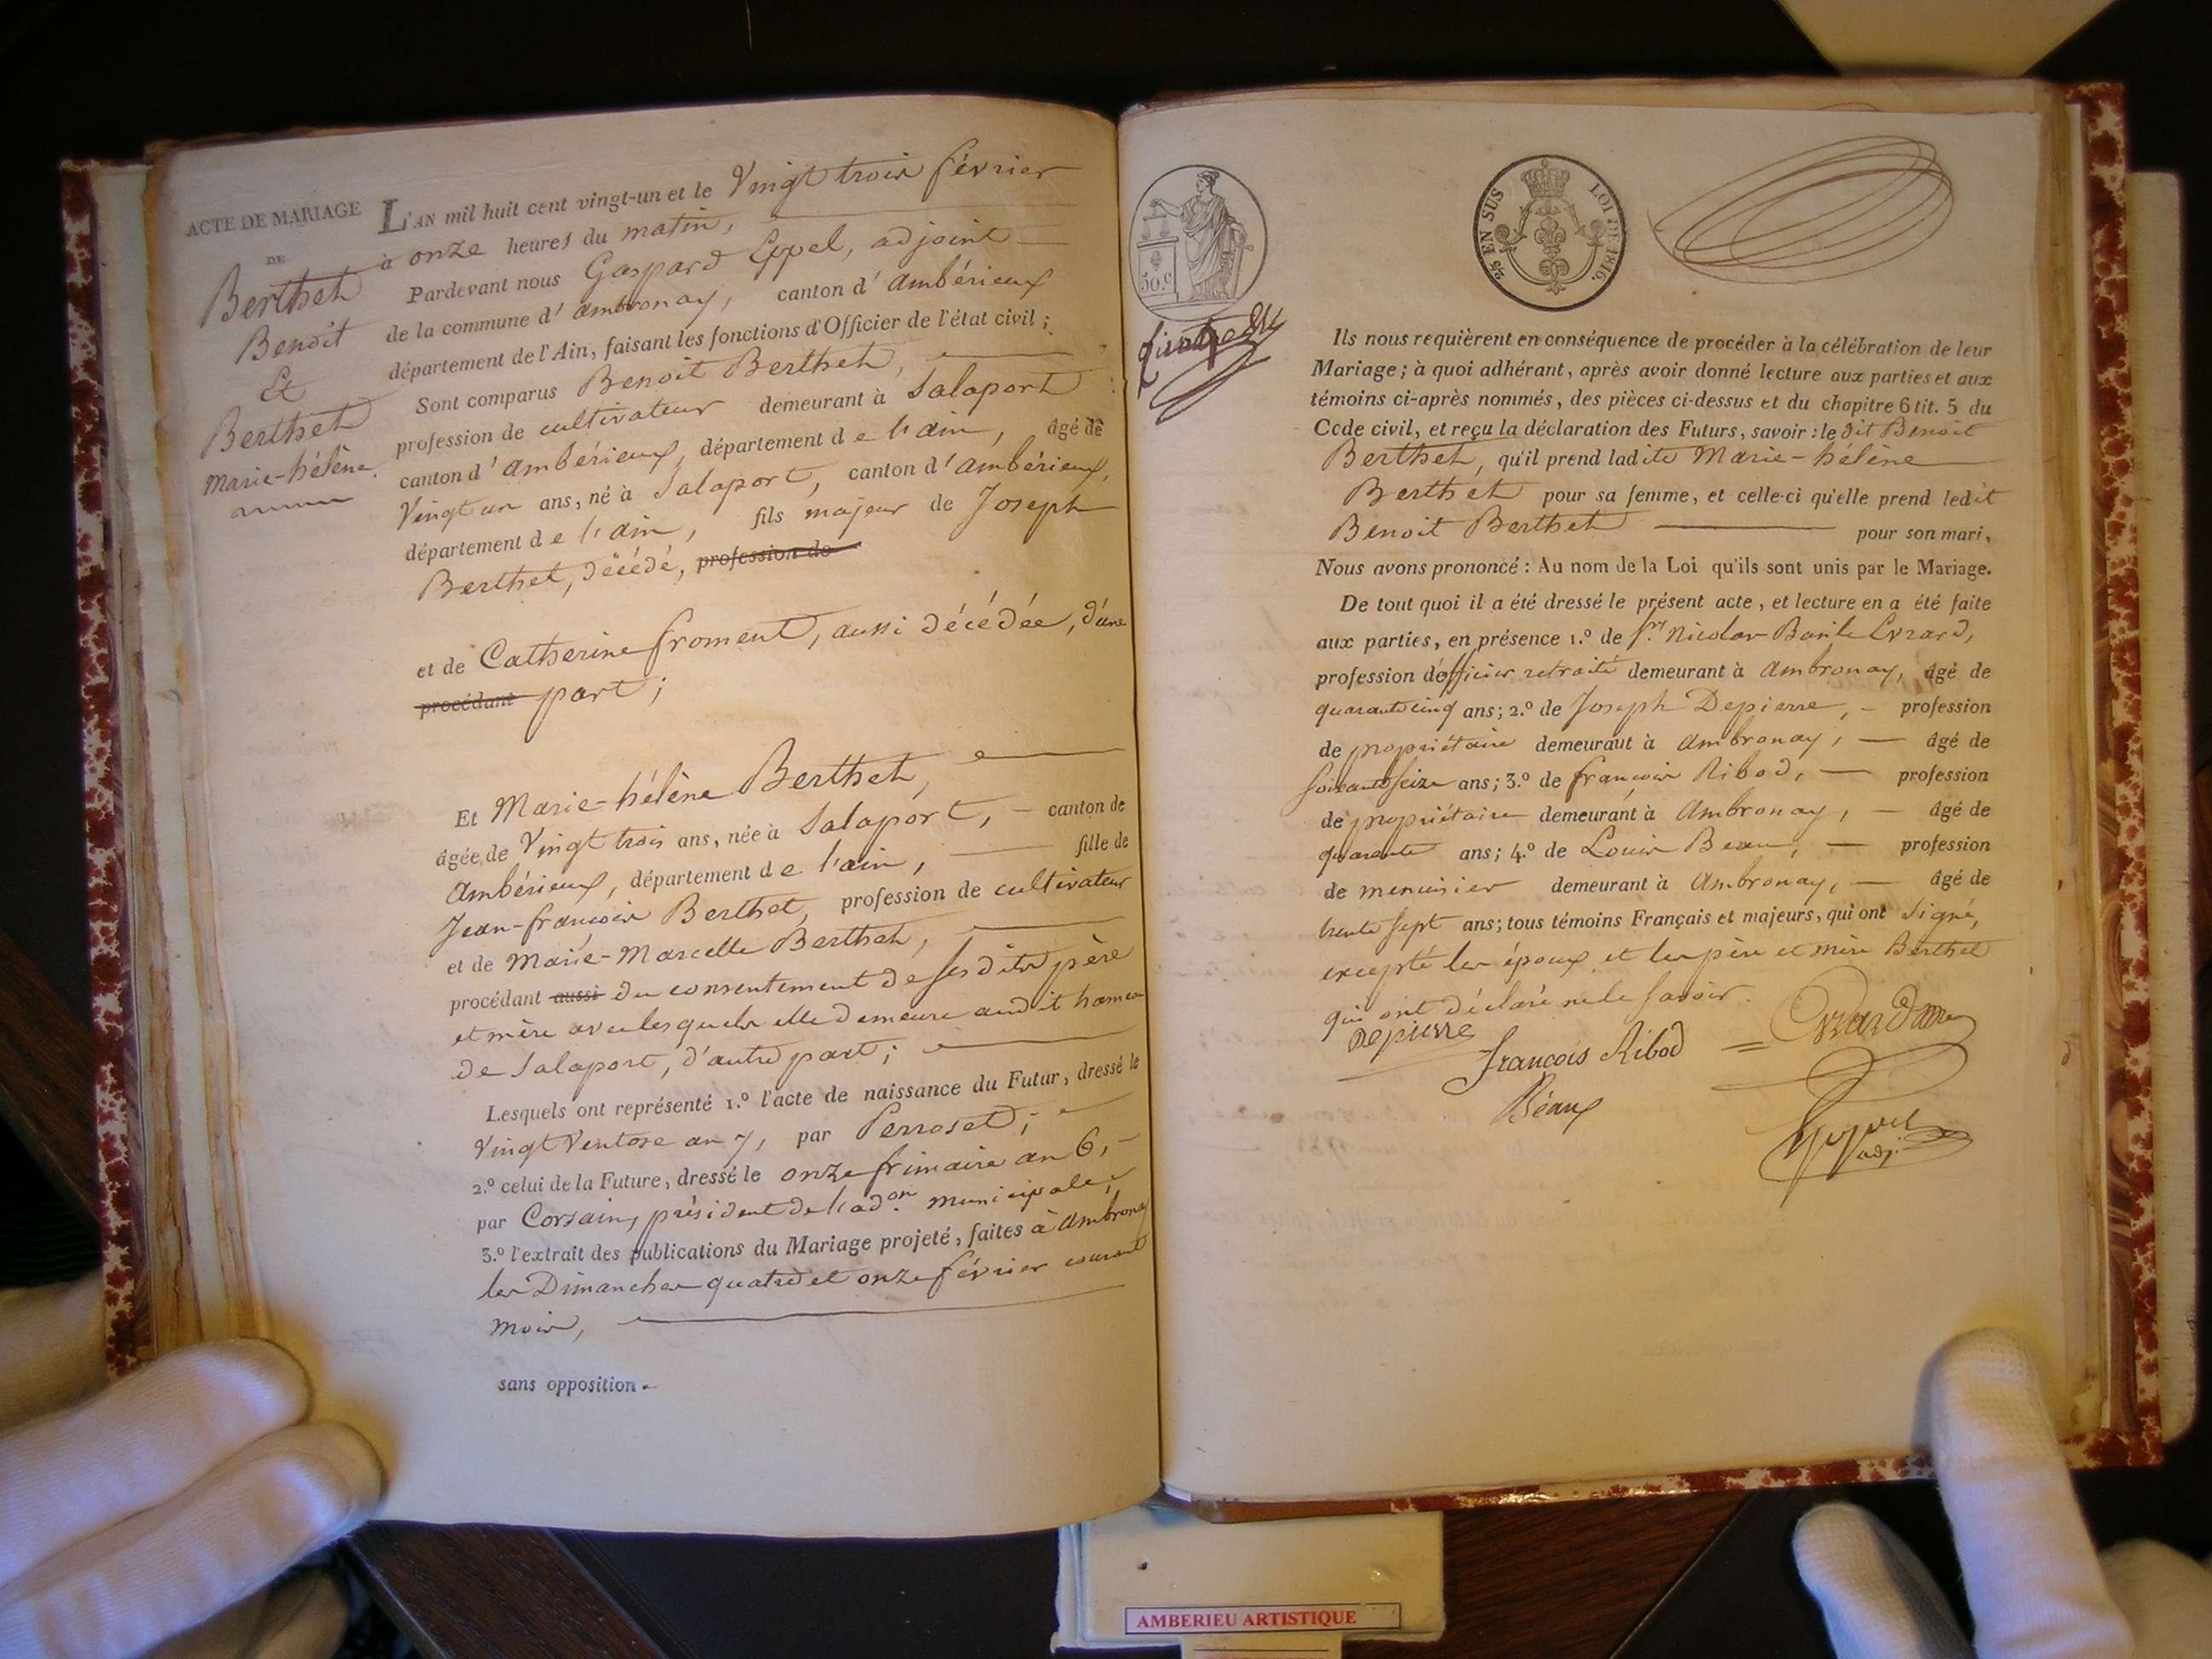 ACTE DE MARIAGE
DE
Berthet
Benoit
Et
Berthet
Marie-hélène.
L'AN mil huit cent vingt-un et le Vingt trois février
à onze heures du matin,
Pardevant nous Gaspard Eppel, adjoint
de la commune d' ambronay, canton d' ambérieux
département de l'Ain, faisant les fonctions d'Officier de l'état civil ;
Sont comparus Benoit Berthet,
profession de cultivateur demeurant à Salaport
canton d' ambérieux, département de l'ain, âgé de
Vingt un ans, né à Salaport, canton d' ambérieux,
département de l'ain, fils majeur de Joseph
Berthet, décédé, profession de
et de Catherine froment, aussi décédée, d'une
procédant part ;
Et Marie-hélène Berthet,
âgée de Vingt trois ans, née à Salaport, canton de
Ambérieux, département de l'ain, fille de
Jean-francois Berthet, profession de cultivateur
et de Marie-Marcelle Berthet,
procédant aussi du consentement de ses dits père
et mère avec lesquels elle demeure audit hameau
de Salaport, d'autre part ;
Lesquels ont représenté 1.º l'acte de naissance du Futur, dressé le
Vingt Ventose an 7, par Perroset ;
2.º celui de la Future, dressé le onze frimaire an 6,
par Corsain, président de l'ad.on municipale,
3.º l'extrait des publications du Mariage projeté, faites à ambronay
les Dimanches quatre et onze février courant
mois,
sans opposition.
50.c
25 EN SUS
LOI DE 1816.
Ils nous requièrent en conséquence de procéder à la célébration de leur
Mariage ; à quoi adhérant, après avoir donné lecture aux parties et aux
témoins ci-après nommés, des pièces ci-dessus et du chapitre 6 tit. 5 du
Code civil, et reçu la déclaration des Futurs, savoir : le dit Benoit
Berthet, qu'il prend ladite Marie-hélène
Berthet pour sa femme, et celle-ci qu'elle prend ledit
Benoit Berthet pour son mari,
Nous avons prononcé : Au nom de la Loi qu'ils sont unis par le Mariage.
De tout quoi il a été dressé le présent acte, et lecture en a été faite
aux parties, en présence 1.º de Sr. Nicolas-Basile Evrard,
profession d'officier retraité demeurant à Ambronay, âgé de
quarante cinq ans ; 2.º de Joseph Depierre, profession
de propriétaire demeurant à Ambronay, âgé de
soixante seize ans ; 3.º de francois Ribod, profession
de propriétaire demeurant à Ambronay, âgé de
quarante ans ; 4.º de Louis Beau, profession
de menuisier demeurant à Ambronay, âgé de
trente sept ans ; tous témoins Français et majeurs, qui ont signé,
excepté les époux et les père et mère Berthet
qui ont déclaré ne le savoir.
Depierre
francois Ribod
Evrard
Béaux
Eppel
adj.
AMBERIEU ARTISTIQUE